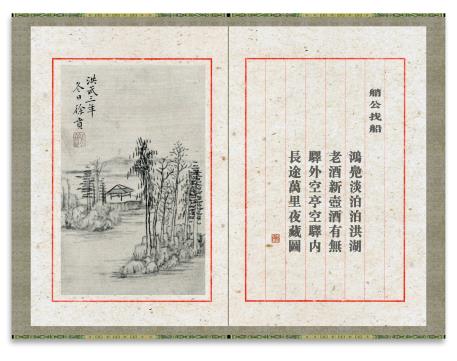 艄公找船
鴻鳧淡泊泊洪湖
老酒新壺酒有無
驛外空亭空驛内
長途萬里夜藏圖
洪武三年
冬日徐賁